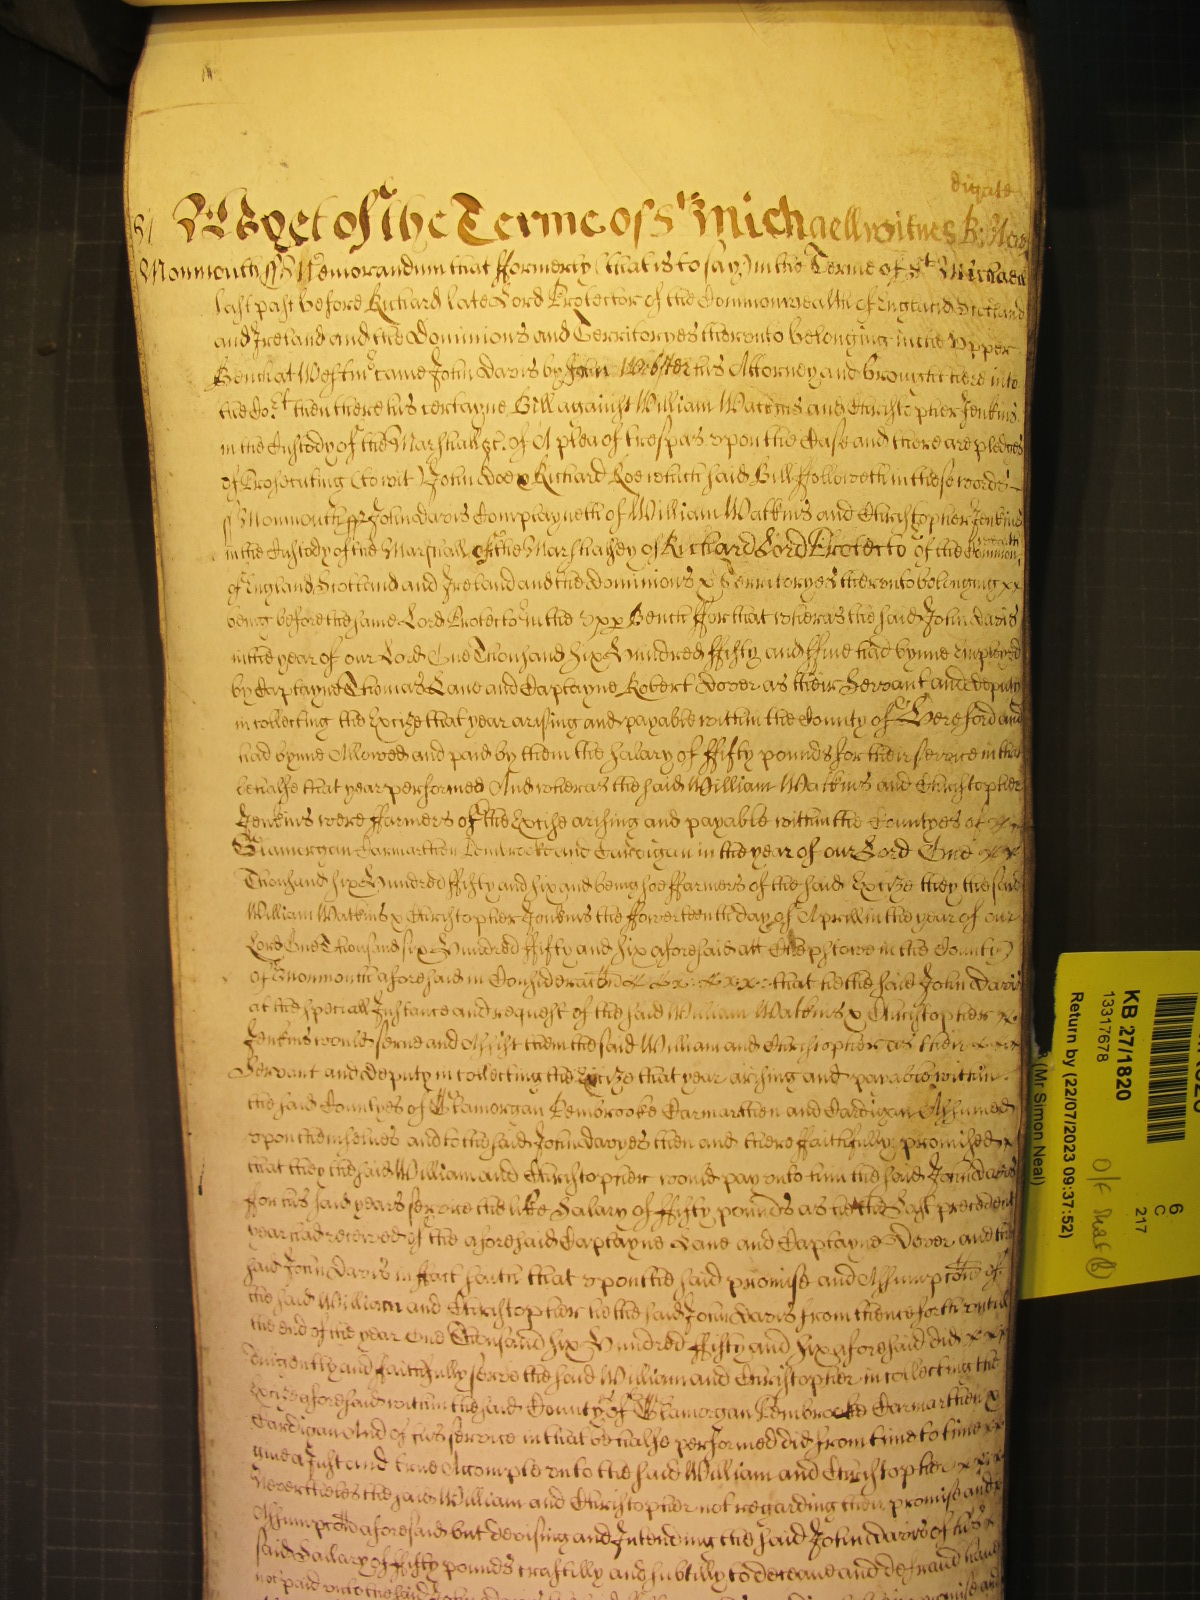 digitale
Yet of the Terme of St Michaell witnes R: New
Monmouth ss Memorandum that fformerly (that is to say) in the Terme of St Michaell
last past before Richard late Lord Protector of the Commonwealth of England Scotland
and Ireland and the Dominions and Territoryes thereunto belonging in the Upper
Bench at Westmr came John Davis by John Webster his Attorney and brought here into
the Cort then there his certayne Bill against William Watkins and Christopher Jenkins
in the Custody of the Marshall &c. of A plea of trespas upon the Case and there are pledges
of Prosecuting (to wit) John Doe & Richard Roe which said Bill ffolloweth in these words
ss Monmouth ss John Davis Complayneth of William Watkins and Christopher Jenkins
in the Custody of the Marshall of the Marshalsey of Richard Lord Protector of the Common wealth
of England Scotland and Ireland and the Dominions & Territoryes thereunto belonging x x
being before the same Lord Protector in the Upp Bench ffor that wheras the said John Davis
in the year of our Lord One Thousand Six Hundred ffifty and ffive had bynne Imployed
by Captayne Thomas Lane and Captayne Robert Dover as their Servant and deputy
in collecting the Excize that year arising and payable within the County of Hereford and
had bynne Allowed and paid by them the Salary of ffifty pounds for their service in that
behalfe that year performed And wheras the said William Watkins and Christopher
Jenkins were ffarmers of the Excise arising and payable within the Countyes of x x
Glamorgan Carmarthen Pembrooke and Cardigan in the year of our Lord One x x
Thousand Six Hundred ffifty and six and being soe ffarmers of the said Excize they the said
William Watkins & Christopher Jenkins the ffowerteenth day of Aprill in the year of our
Lord One Thousand six Hundred ffifty and six aforesaid att Chepstowe in the County
of Monmouth aforesaid in Consideracon x x x x x that he the said John Davis
at the speciall Instance and request of the said William Watkins & Christopher x
Jenkins would serve and Assist them the said William and Christopher as their x x x
Servant and deputy in collecting the Excize that year arising and payable within
the said Countyes of Glamorgan Pembrooke Carmarthen and Cardigan Assumed
upon themselves and to the said John Davyes then and there ffaithfully promised x
that they the said William and Christopher would pay unto him the said John Davis
for his said years service the like Salary of ffifty pounds as he the Last precedent
year had received of the aforesaid Captayne Lane and Captayne Dover and the
said John Davis in ffact saith that upon the said promise and Assumpcon of
the said William and Christopher he the said John Davis from thenceforth untill
the end of the year One Thousand Six Hundred ffifty and Six aforesaid did x x x
diligently and ffaithfully serve the said William and Christopher in collecting the
Excize aforesaid within the said County of Glamorgan Pembrooke Carmarthen &
Cardigan And of his service in that behalfe performed did from time to time x x
give a Just and true Accompte unto the said William and Christopher x x x
Neverthelesse the said William and Christopher not regarding their promise and
Assumpcon aforesaid but devising and Intending the said John Davis of his x
said Salary of ffifty pounds craftily and subtilly to deceave and defraud have
not paid unto the said John Davis
KB 27/1820
13317678
Return by (22/07/2023 09:37:52)
(Mr Simon Neal)
6
C
217